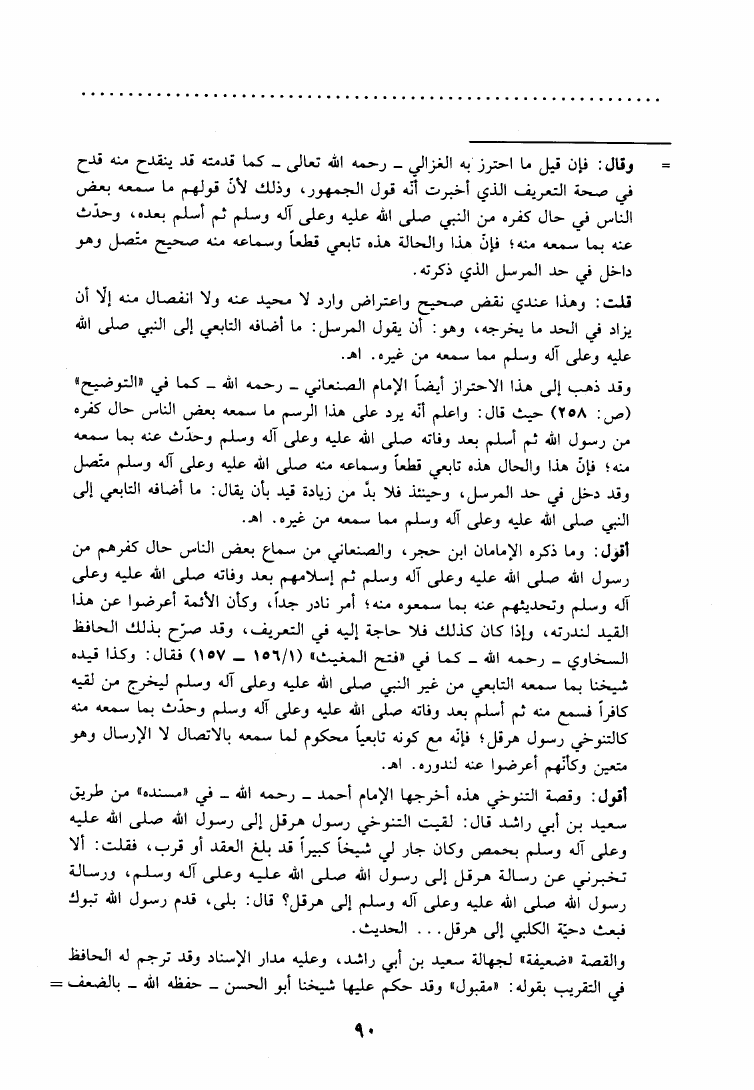 ................................................................
= وقال: فإن قيل ما احترز به الغزالي ـ رحمه الله تعالى ـ كما قدمته قد ينقدح منه قدح
في صحة التعريف الذي أخبرت أنّه قول الجمهور، وذلك لأنّ قولهم ما سمعه بعض
الناس في حال كفره من النبي صلى الله عليه وعلى آله وسلم ثم أسلم بعده، وحدّث
عنه بما سمعه منه؛ فإنّ هذا والحالة هذه تابعي قطعاً وسماعه منه صحيح متّصل وهو
داخل في حد المرسل الذي ذكرته.
قلت: وهذا عندي نقض صحيح واعتراض وارد لا محيد عنه ولا انفصال منه إلّا أن
يزاد في الحد ما يخرجه، وهو: أن يقول المرسل: ما أضافه التابعي إلى النبي صلى الله
عليه وعلى آله وسلم مما سمعه من غيره. اهـ.
وقد ذهب إلى هذا الاحتراز أيضاً الإمام الصنعاني ـ رحمه الله ـ كما في «التوضيح»
(ص: ٢٥٨) حيث قال: واعلم أنّه يرد على هذا الرسم ما سمعه بعض الناس حال كفره
من رسول الله ثم أسلم بعد وفاته صلى الله عليه وعلى آله وسلم وحدّث عنه بما سمعه
منه؛ فإنّ هذا والحال هذه تابعي قطعاً وسماعه منه صلى الله عليه وعلى آله وسلم متّصل
وقد دخل في حد المرسل، وحينئذ فلا بدَّ من زيادة قيد بأن يقال: ما أضافه التابعي إلى
النبي صلى الله عليه وعلى آله وسلم مما سمعه من غيره. اهـ.
أقول: وما ذكره الإمامان ابن حجر، والصنعاني من سماع بعض الناس حال كفرهم من
رسول الله صلى الله عليه وعلى آله وسلم ثم إسلامهم بعد وفاته صلى الله عليه وعلى
آله وسلم وتحديثهم عنه بما سمعوه منه؛ أمر نادر جداً، وكأن الأئمة أعرضوا عن هذا
القيد لندرته، وإذا كان كذلك فلا حاجة إليه في التعريف، وقد صرّح بذلك الحافظ
السخاوي ـ رحمه الله ـ كما في «فتح المغيث» (١/١٥٦ ـ ١٥٧) فقال: وكذا قيده
شيخنا بما سمعه التابعي من غير النبي صلى الله عليه وعلى آله وسلم ليخرج من لقيه
كافراً فسمع منه ثم أسلم بعد وفاته صلى الله عليه وعلى آله وسلم وحدّث بما سمعه منه
كالتنوخي رسول هرقل؛ فإنّه مع كونه تابعياً محكوم لما سمعه بالاتصال لا الإرسال وهو
متعين وكأنّهم أعرضوا عنه لندوره. اهـ.
أقول: وقصة التنوخي هذه أخرجها الإمام أحمد ـ رحمه الله ـ في «مسنده» من طريق
سعيد بن أبي راشد قال: لقيت التنوخي رسول هرقل إلى رسول الله صلى الله عليه
وعلى آله وسلم بحمص وكان جار لي شيخاً كبيراً قد بلغ العقد أو قرب، فقلت: ألا
تخبرني عن رسالة هرقل إلى رسول الله صلى الله عليه وعلى آله وسلم، ورسالة
رسول الله صلى الله عليه وعلى آله وسلم إلى هرقل؟ قال: بلى، قدم رسول الله تبوك
فبعث دحيّة الكلبي إلى هرقل... الحديث.
والقصة «ضعيفة» لجهالة سعيد بن أبي راشد، وعليه مدار الإسناد وقد ترجم له الحافظ
في التقريب بقوله: «مقبول» وقد حكم عليها شيخنا أبو الحسن ـ حفظه الله ـ بالضعف =
٩٠